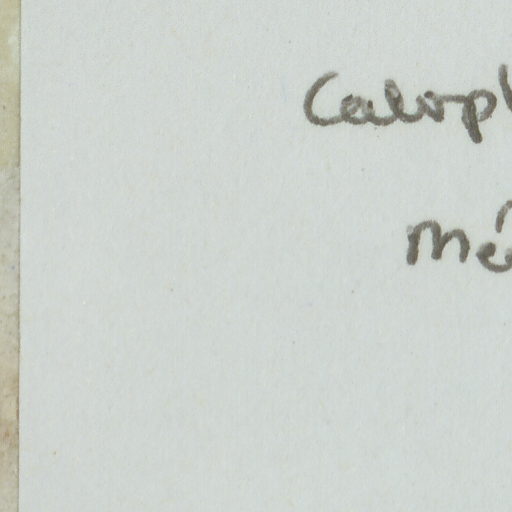 Calop
Mé